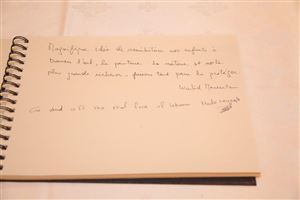 Magnifique idée de sensibiliser nos enfants à
travers l'art, la peinture. La nature, est notre
plus grande richesse, faisons tout pour la protéger.
Walid
the real face of Lebanon